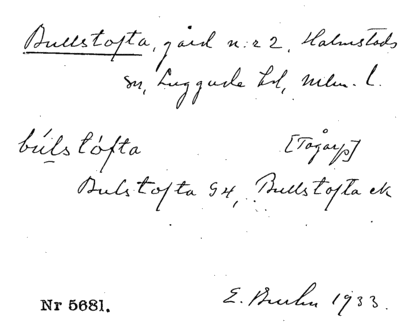 Bullstofta, gård n:r 2, Halmstads
sn, Luggude hd, Mlm. l.
búlstófta [Tågarp]
Bulstofta G4, Bullstofta ek
Nr 5681. E. Bruhn 1933.